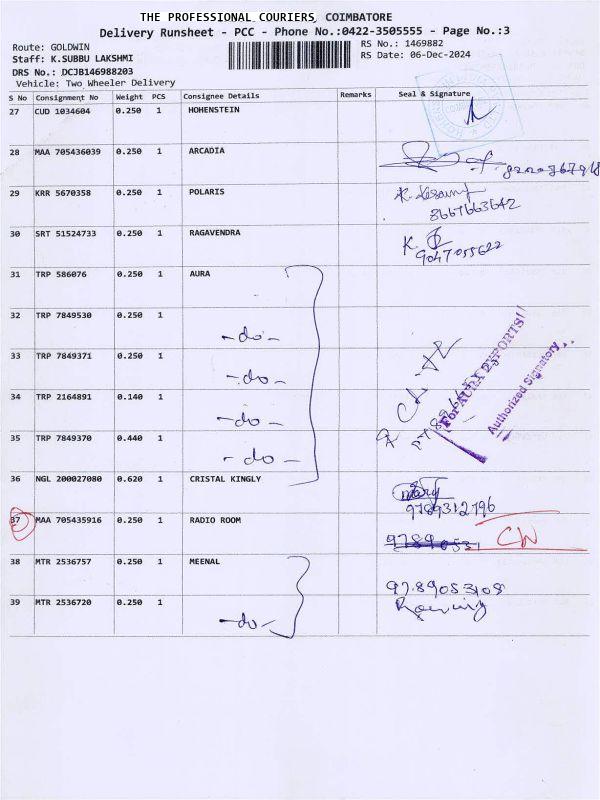 THE PROFESSIONAL COURIERS, COIMBATORE
Delivery Runsheet - PCC - Phone No.:0422-3505555 - Page No.:3
Route: GOLDWIN
RS No.: 1469882
Staff: K.SUBBU LAKSHMI
RS Date: 06-Dec-2024
DRS No.: DCJB146988203
Vehicle: Two Wheeler Delivery
S No Consignment No Weight PCS Consignee Details Remarks Seal & Signature
27 CUD 1034604 0.250 1 HOHENSTEIN
28 MAA 705436039 0.250 1 ARCADIA
29 KRR 5670358 0.250 1 POLARIS
8667663642
30 SRT 51524733 0.250 1 RAGAVENDRA
9047055622
31 TRP 586076 0.250 1 AURA
32 TRP 7849530 0.250 1 -do-
33 TRP 7849371 0.250 1 -do-
34 TRP 2164891 0.140 1 -do-
35 TRP 7849370 0.440 1 -do-
For AURA EXPORTS
Authorized Signatory
36 NGL 200027080 0.620 1 CRISTAL KINGLY
Mary
9789312796
37 MAA 705435916 0.250 1 RADIO ROOM
CN
38 MTR 2536757 0.250 1 MEENAL
9789053108
39 MTR 2536720 0.250 1 -do-